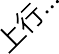 上行…